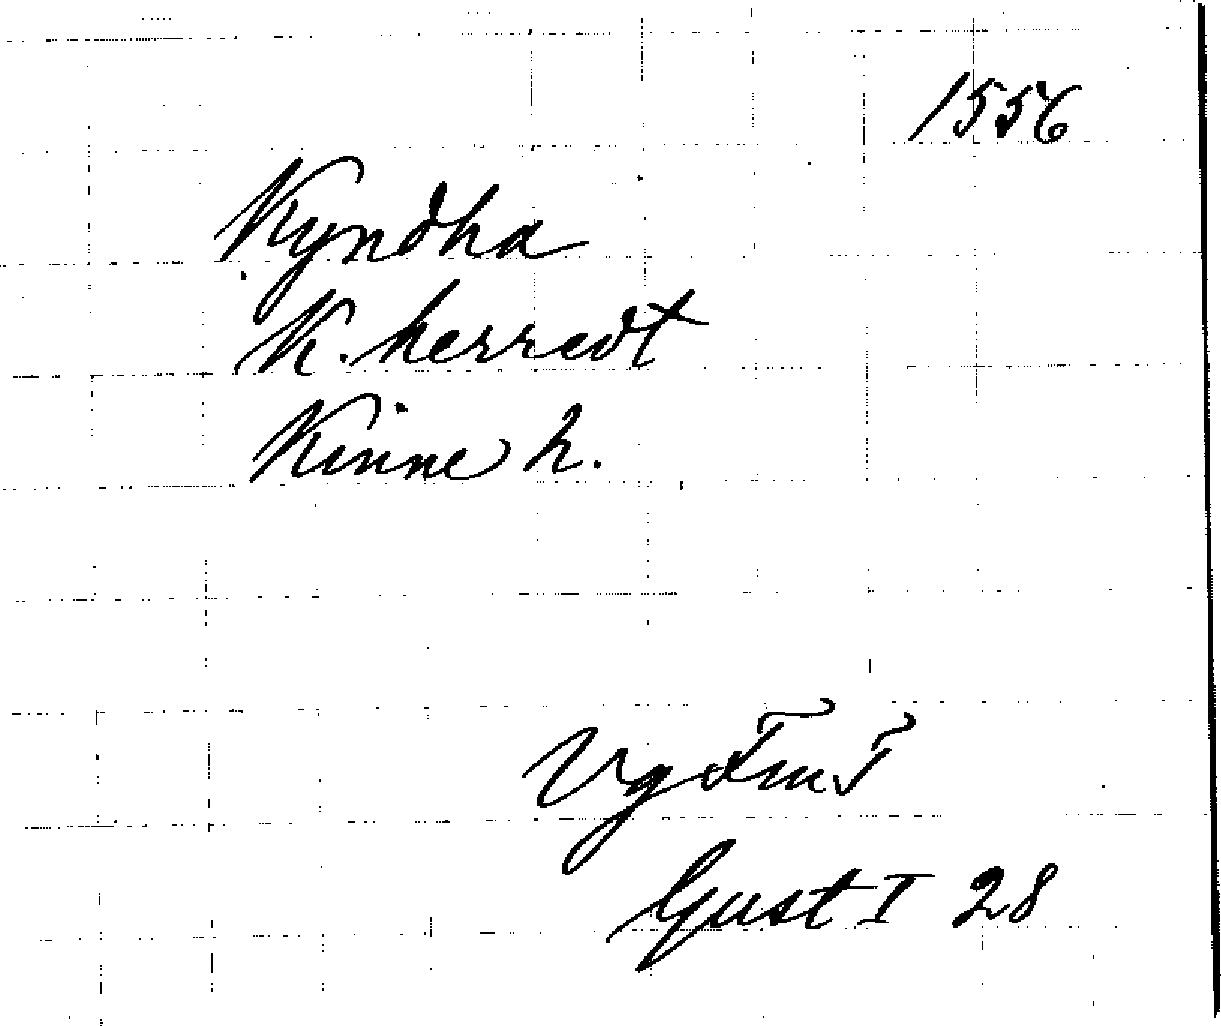 1556
Kyndha
K. herredt
Kinne h.
Vg FmF
Gust I 28